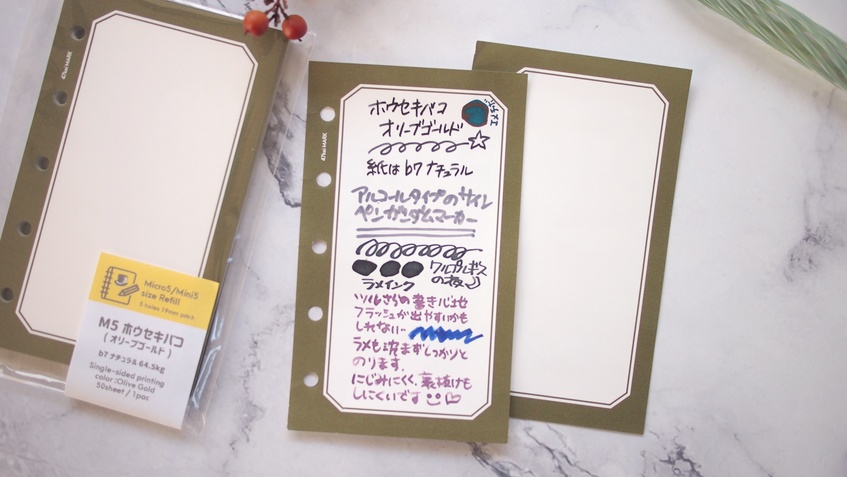 47al MARK
Micro5/Mini5
size Refill
5 holes 19mm pitch
M5 ホウセキバコ
( オリーブゴールド )
b7 ナチュラル 64.5kg
Single-sided printing
color :Olive Gold
50sheet / 1pac
47al MARK
ホウセキバコ
オリーブゴールド
紙は b7 ナチュラル
アルコールタイプのサイン
ペンガンダムマーカー
ワルプルギス
の夜
ラメインク
ツルさらの書き心地
フラッシュが出やすいかも
しれない…
ラメも沈まずしっかりと
のります。
にじみにくく、裏抜けも
しにくいです